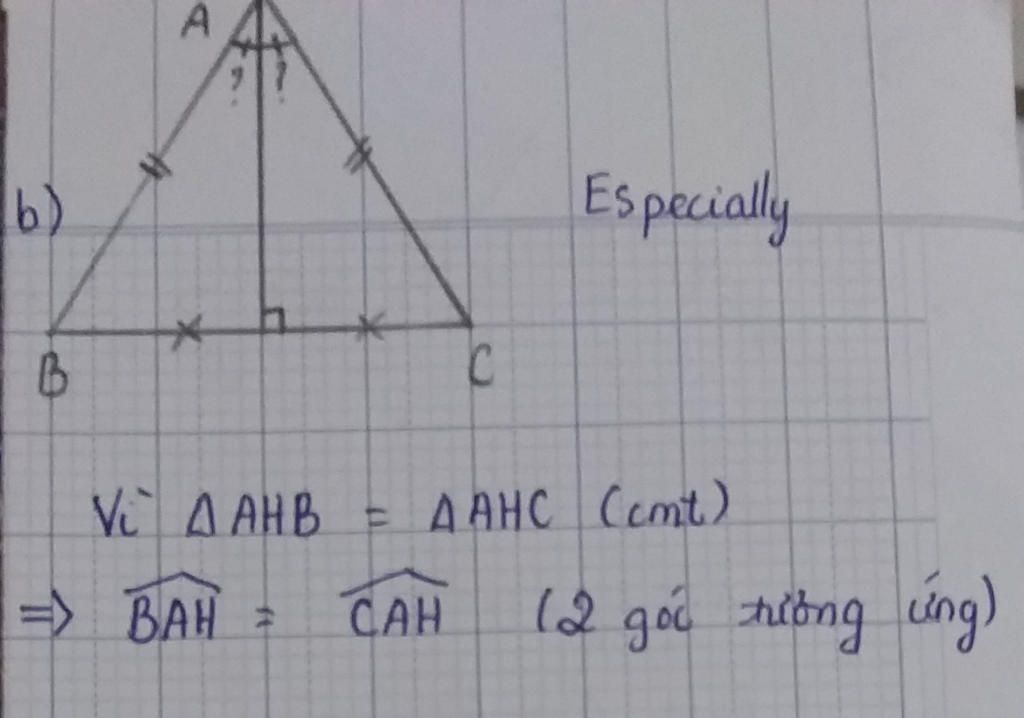 A
? ?
b) Especially
B C
Vì ΔAHB = ΔAHC (cmt)
=> \widehat{BAH} = \widehat{CAH} (2 góc tương ứng)